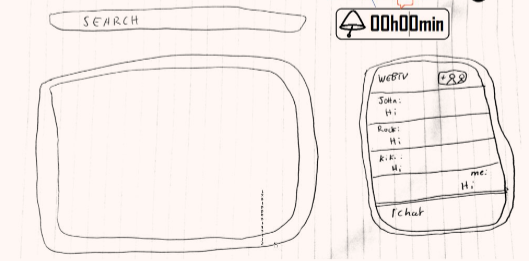 SEARCH
00h00min
WEBTV +
John:
Hi
Rock:
Hi
Kiki:
Hi
me:
Hi
chat